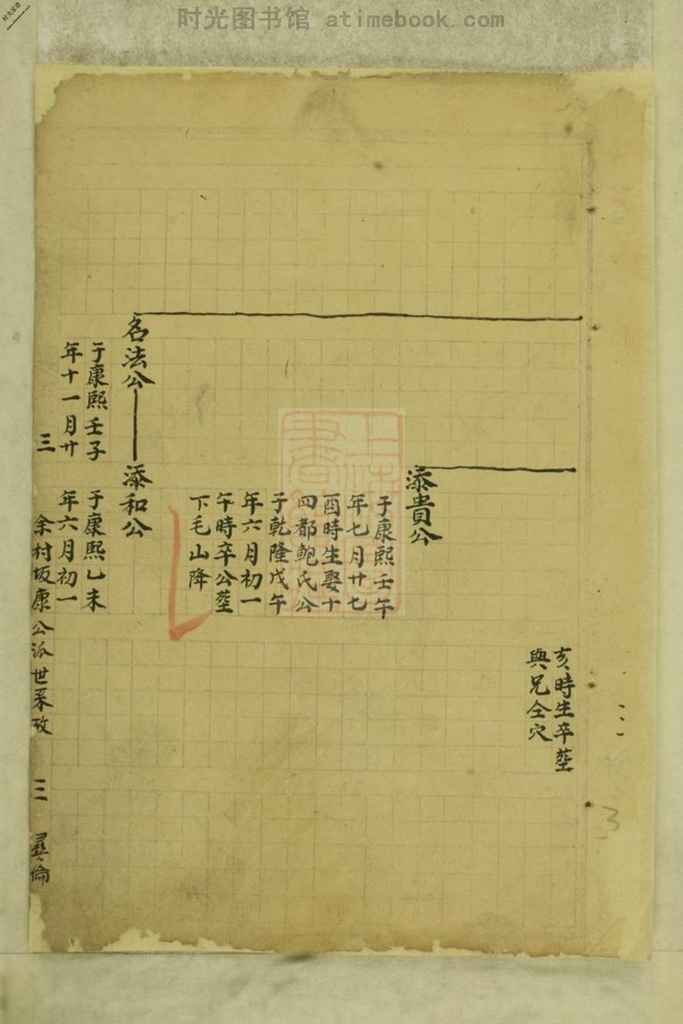 时光图书馆 atimebook.com
亥時生卒塟
與兄仝穴
添貴公
于康熙壬午
年七月廿七
酉時生娶十
四都鮑氏公
于乾隆戊午
年六月初一
午時卒公塟
下毛山降
名法公
添和公
于康熙壬子
年十一月廿
于康熙乙未
年六月初一
三
余村坂康公派世系攷
三
彞倫
3